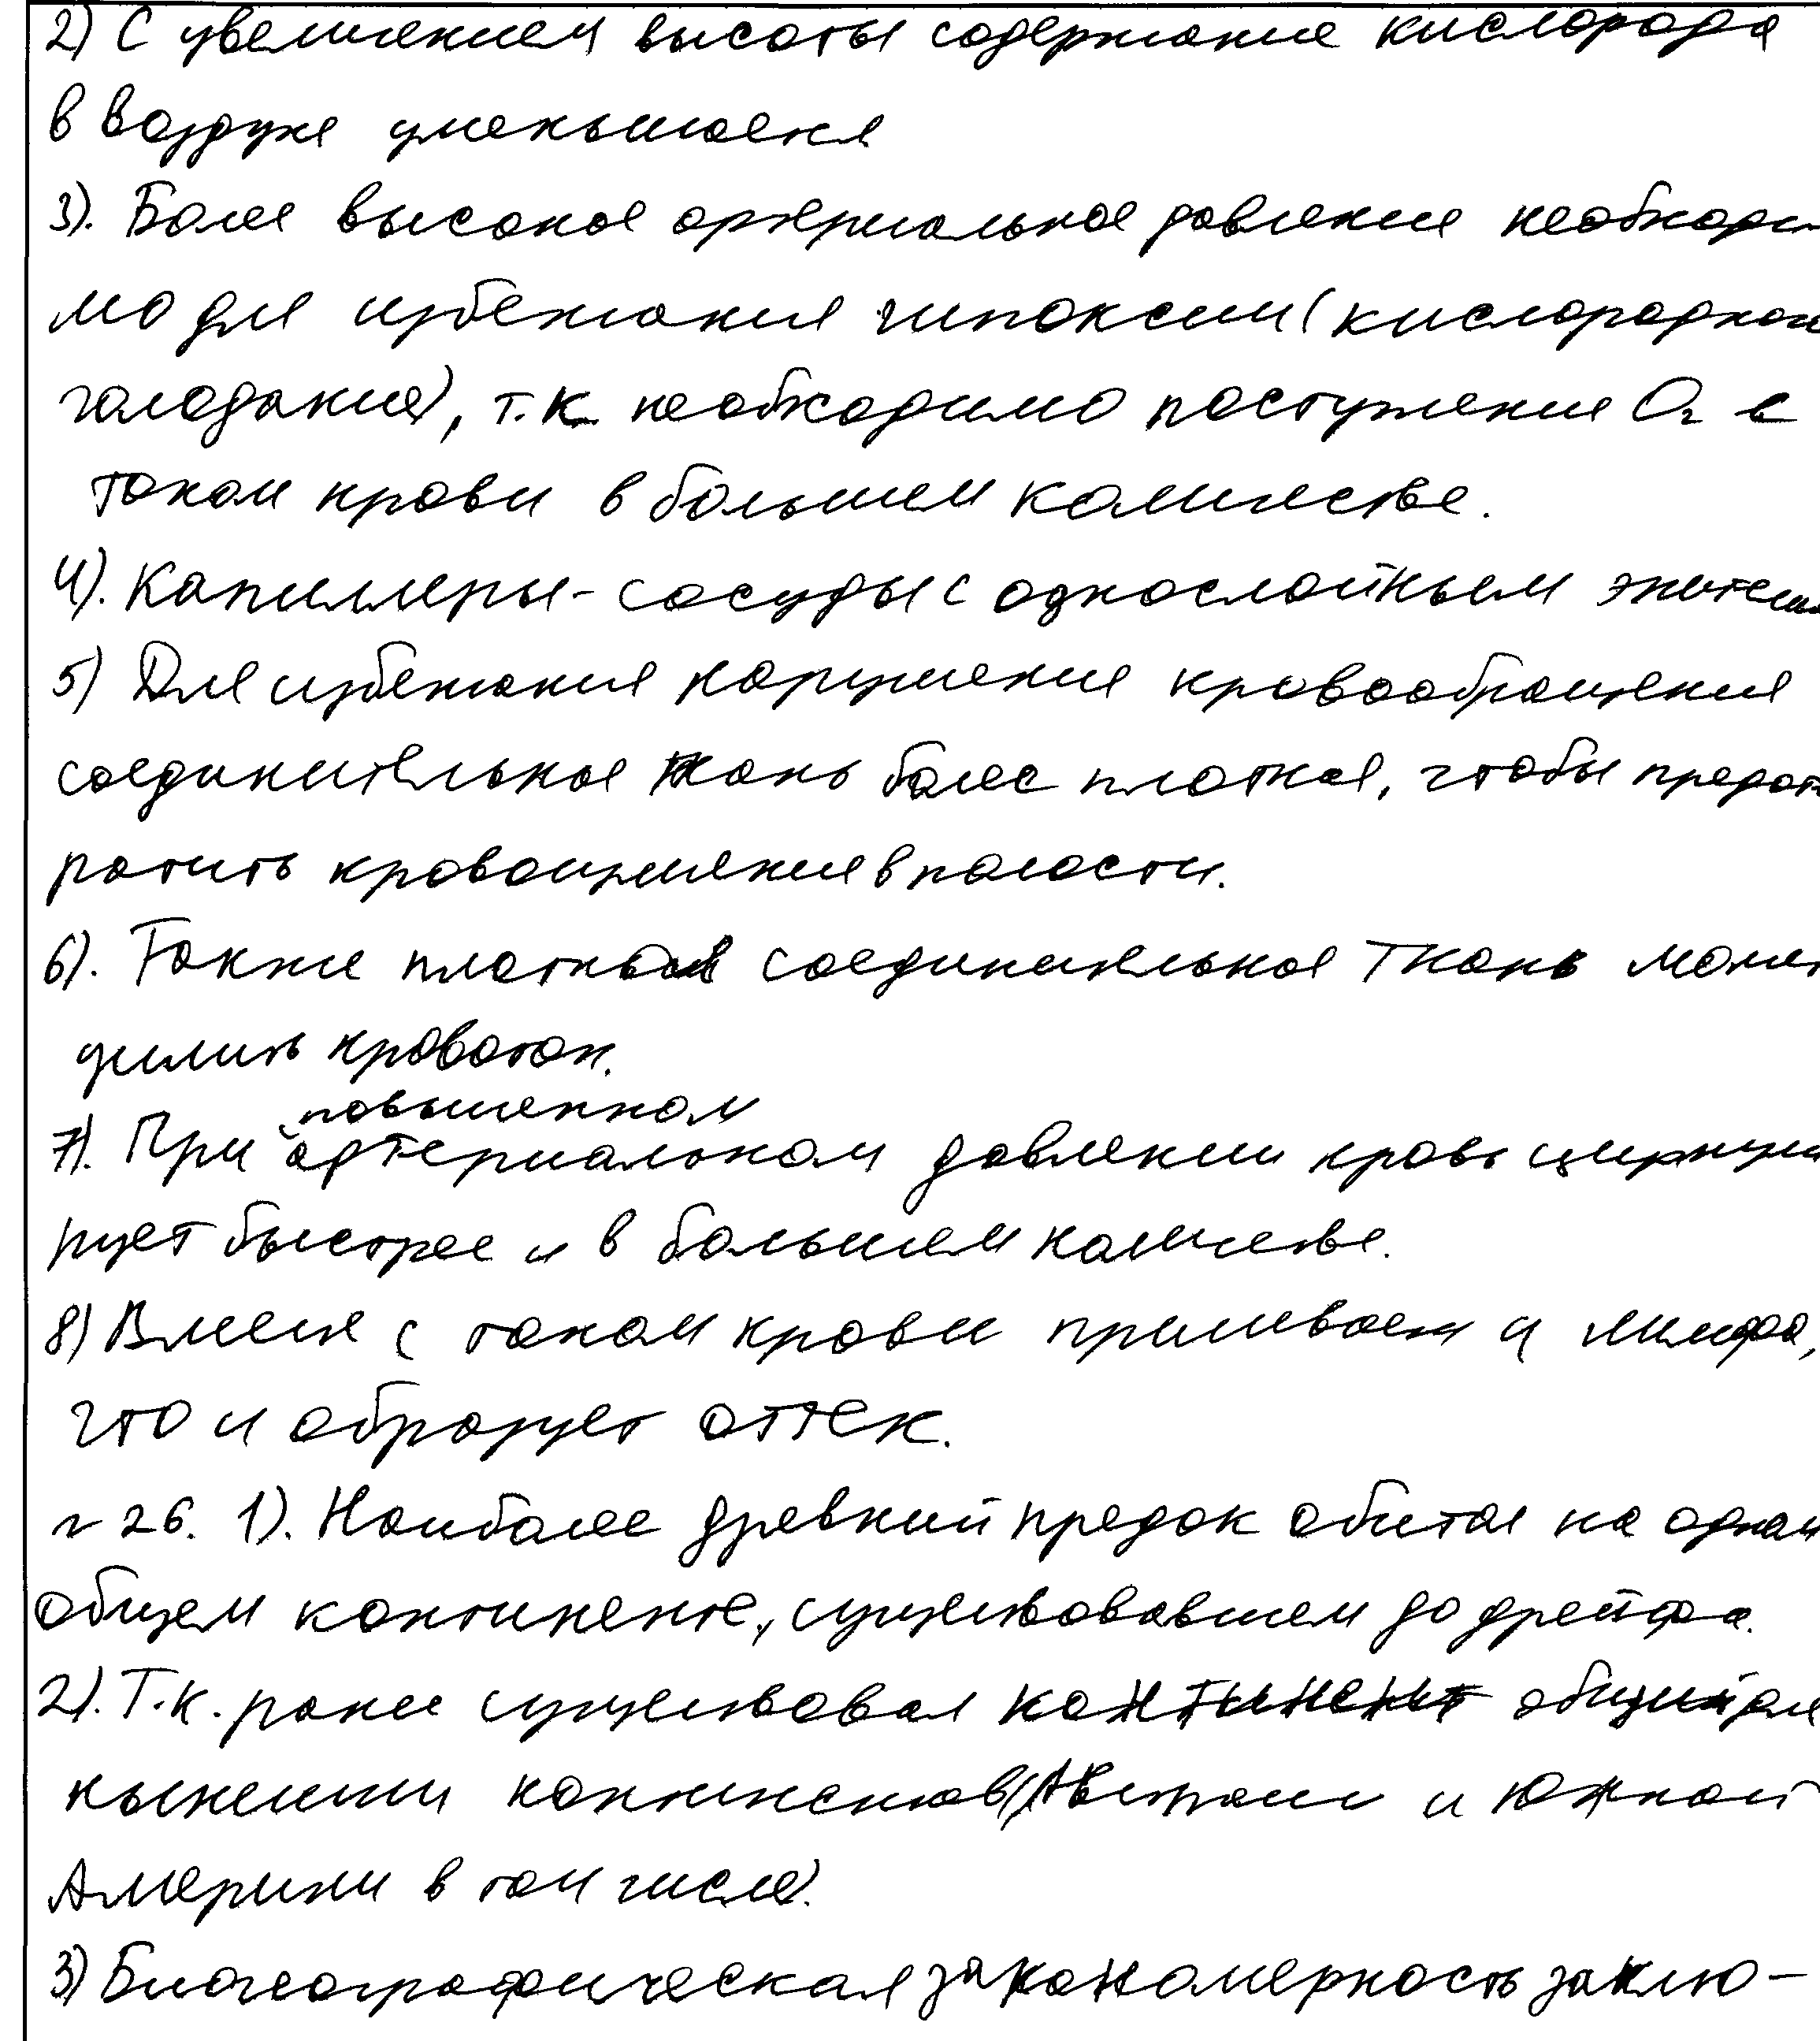 2) С увеличением высоты содержание кислорода
в воздухе уменьшается
3). Более высокое артериальное давление необходи
мо для избежания гипоксии (кислородной
голодание), т.к. необходимо поступление O₂ с
током крови в большем количестве.
4). Капилляры - сосуды с однослойным эпители
5) Для избежания нарушения кровообращения
соединительная ткань более плотная, чтобы предот
ратить кровоизлияния в полости.
6). Также плотная соединительная ткань может
усилить кровоток.
повышенном
7). При артериальном давлении кровь циркули
рует быстрее и в большем количестве.
8) Вместе с током крови приливает и лимфа,
что и образует оттек.
№ 26. 1). Наиболее древний предок обитал на одном
общем континенте, существовавшем до дрейфа.
2). Т.к. ранее существовал континент общий для
нынешних континентов (Австралии и Южной
Америки в том числе).
3) Биогеографическая закономерность заклю-